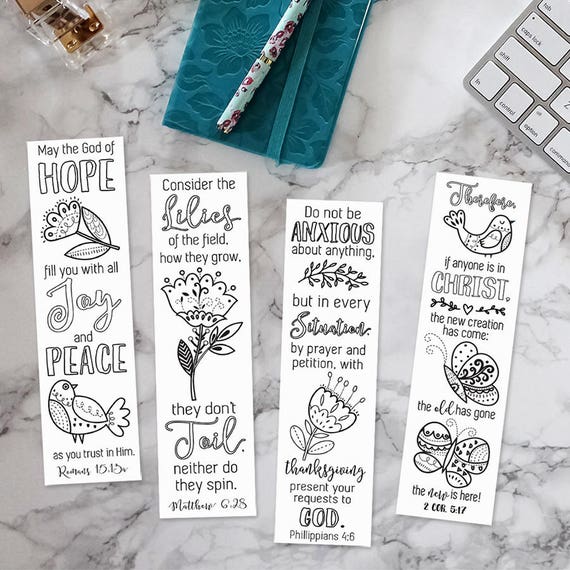 May the God of
HOPE
fill you with all
Joy
and
PEACE
as you trust in Him.
Romans 15:13a
Consider the
Lilies
of the field,
how they grow,
they don't
Toil,
neither do
they spin.
Matthew 6:28
Do not be
ANXIOUS
about anything,
but in every
Situation,
by prayer and
petition, with
thanksgiving
present your
requests to
GOD.
Phillippians 4:6
Therefore,
if anyone is in
CHRIST,
the new creation
has come:
the old has gone
the new is here!
2 COR. 5:17
tab
caps lock
shift
fn
control
option
command